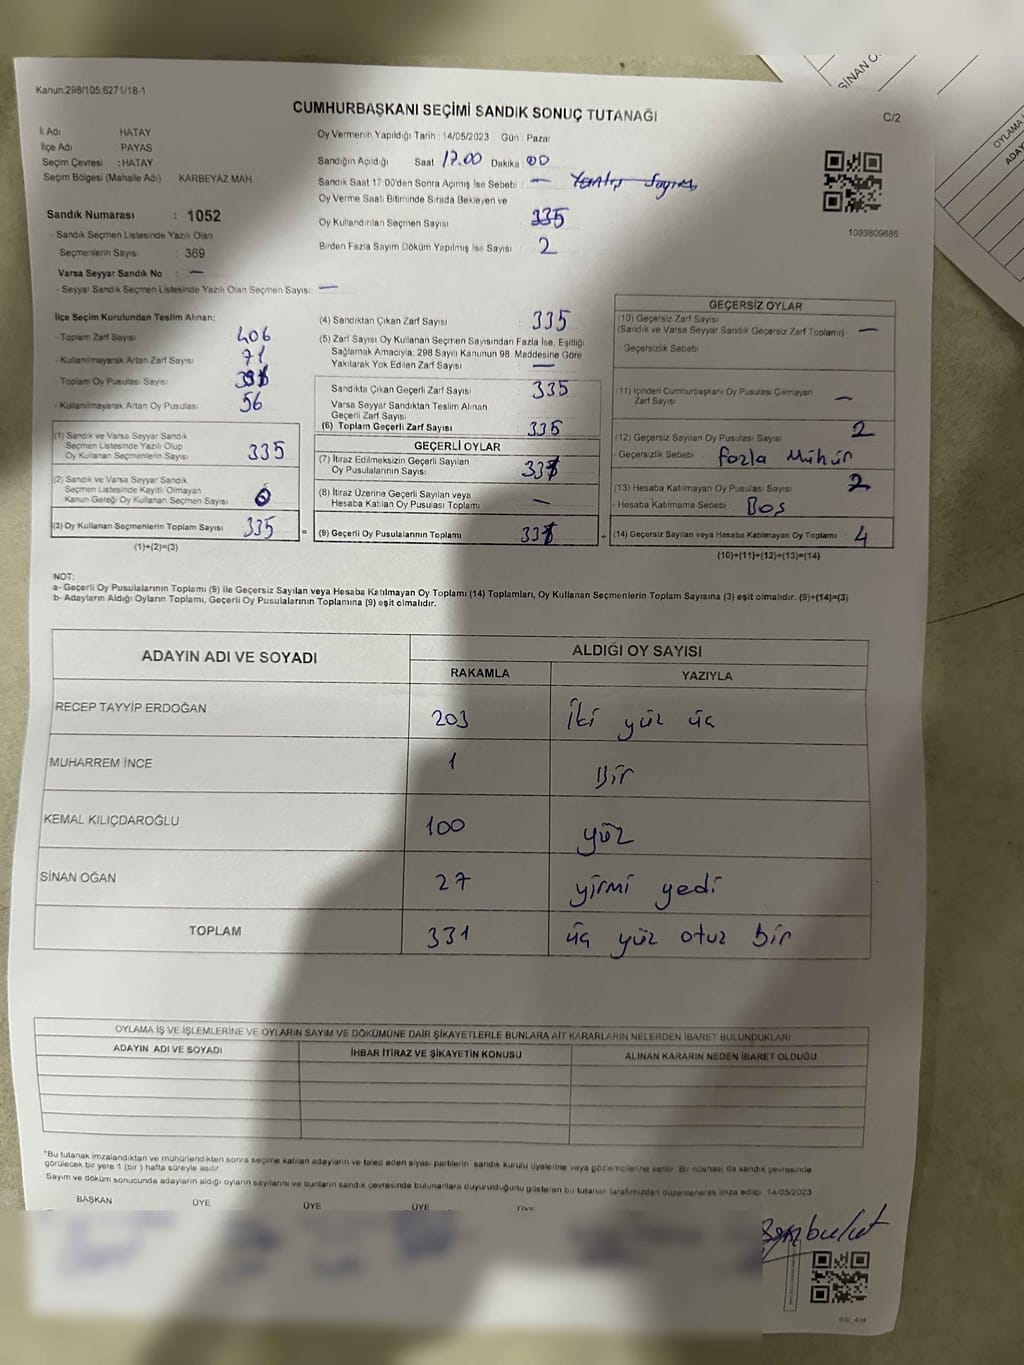 SİNAN O
OYLAMA
ADAY
Kanun;298/105;6271/18-1
CUMHURBAŞKANI SEÇİMİ SANDIK SONUÇ TUTANAĞI
C/2
İl Adı HATAY
İlçe Adı PAYAS
Seçim Çevresi : HATAY
Seçim Bölgesi (Mahalle Adı) KARBEYAZ MAH
Sandık Numarası : 1052
- Sandık Seçmen Listesinde Yazılı Olan
Seçmenlerin Sayısı : 369
Varsa Seyyar Sandık No : —
- Seyyar Sandık Seçmen Listesinde Yazılı Olan Seçmen Sayısı: —
Oy Vermenin Yapıldığı Tarih : 14/05/2023 Gün : Pazar
Sandığın Açıldığı Saat 17.00 Dakika 00
Sandık Saat 17:00'den Sonra Açılmış İse Sebebi : —
Oy Verme Saati Bitiminde Sırada Bekleyen ve
Oy Kullandırılan Seçmen Sayısı : 335
Birden Fazla Sayım Döküm Yapılmış İse Sayısı : 2
1093809686
İlçe Seçim Kurulundan Teslim Alınan;
- Toplam Zarf Sayısı : 406
- Kullanılmayarak Artan Zarf Sayısı : 71
- Toplam Oy Pusulası Sayısı :
- Kullanılmayarak Artan Oy Pusulası : 56
(1) Sandık ve Varsa Seyyar Sandık
Seçmen Listesinde Yazılı Olup
Oy Kullanan Seçmenlerin Sayısı : 335
(2) Sandık ve Varsa Seyyar Sandık
Seçmen Listesinde Kayıtlı Olmayan
Kanun Gereği Oy Kullanan Seçmen Sayısı : 0
(3) Oy Kullanan Seçmenlerin Toplam Sayısı : 335
(1)+(2)=(3)
(4) Sandıktan Çıkan Zarf Sayısı : 335
(5) Zarf Sayısı Oy Kullanan Seçmen Sayısından Fazla İse, Eşitliği
Sağlamak Amacıyla; 298 Sayılı Kanunun 98. Maddesine Göre
Yakılarak Yok Edilen Zarf Sayısı : —
Sandıkta Çıkan Geçerli Zarf Sayısı : 335
Varsa Seyyar Sandıktan Teslim Alınan
Geçerli Zarf Sayısı
(6) Toplam Geçerli Zarf Sayısı : 335
GEÇERLİ OYLAR
(7) İtiraz Edilmeksizin Geçerli Sayılan
Oy Pusulalarının Sayısı : 331
(8) İtiraz Üzerine Geçerli Sayılan veya
Hesaba Katılan Oy Pusulası Toplamı : —
(9) Geçerli Oy Pusulalarının Toplamı : 331
GEÇERSİZ OYLAR
(10) Geçersiz Zarf Sayısı
(Sandık ve Varsa Seyyar Sandık Geçersiz Zarf Toplamı) : —
- Geçersizlik Sebebi :
(11) İçinden Cumhurbaşkanı Oy Pusulası Çıkmayan
Zarf Sayısı : —
(12) Geçersiz Sayılan Oy Pusulası Sayısı : 2
- Geçersizlik Sebebi : fazla Mühür
(13) Hesaba Katılmayan Oy Pusulası Sayısı : 2
- Hesaba Katılmama Sebebi : Bos
(14) Geçersiz Sayılan veya Hesaba Katılmayan Oy Toplamı : 4
(10)+(11)+(12)+(13)=(14)
NOT:
a- Geçerli Oy Pusulalarının Toplamı (9) ile Geçersiz Sayılan veya Hesaba Katılmayan Oy Toplamı (14) Toplamları, Oy Kullanan Seçmenlerin Toplam Sayısına (3) eşit olmalıdır. (9)+(14)=(3)
b- Adayların Aldığı Oyların Toplamı, Geçerli Oy Pusulalarının Toplamına (9) eşit olmalıdır.
ADAYIN ADI VE SOYADI
ALDIĞI OY SAYISI
RAKAMLA YAZIYLA
RECEP TAYYİP ERDOĞAN 203 İki yüz üç
MUHARREM İNCE 1 Bir
KEMAL KILIÇDAROĞLU 100 yüz
SİNAN OĞAN 27 yirmi yedi
TOPLAM 331 üç yüz otuz bir
OYLAMA İŞ VE İŞLEMLERİNE VE OYLARIN SAYIM VE DÖKÜMÜNE DAİR ŞİKAYETLERLE BUNLARA AİT KARARLARIN NELERDEN İBARET BULUNDUKLARI
ADAYIN ADI VE SOYADI İHBAR İTİRAZ VE ŞİKAYETİN KONUSU ALINAN KARARIN NEDEN İBARET OLDUĞU
*Bu tutanak imzalandıktan ve mühürlendikten sonra seçime katılan adayların ve talep eden siyasi partilerin sandık kurulu üyelerine veya gözlemcilerine verilir. Bir nüshası da sandık çevresinde
görülecek bir yere 1 (bir) hafta süreyle asılır.
Sayım ve döküm sonucunda adayların aldığı oyların sayılarını ve bunların sandık çevresinde bulunanlara duyurulduğunu gösteren bu tutanak tarafımızdan düzenlenerek imza edildi. 14/05/2023
BAŞKAN ÜYE ÜYE ÜYE ÜYE